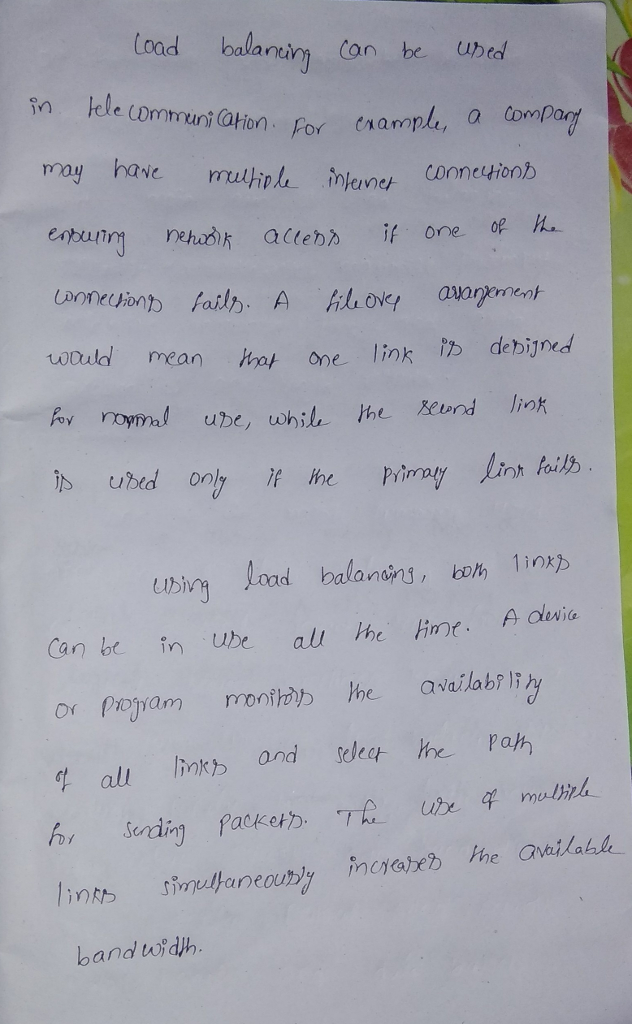 Load balancing can be used
in telecommunication. For example, a company
may have multiple internet connections
ensuring network access if one of the
connections fails. A fileover arrangement
would mean that one link is designed
for normal use, while the second link
is used only if the primary link fails.
using load balancing, both links
can be in use all the time. A device
or program monitors the availability
of all links and select the path
for sending packets. The use of multiple
links simultaneously increases the available
bandwidth.